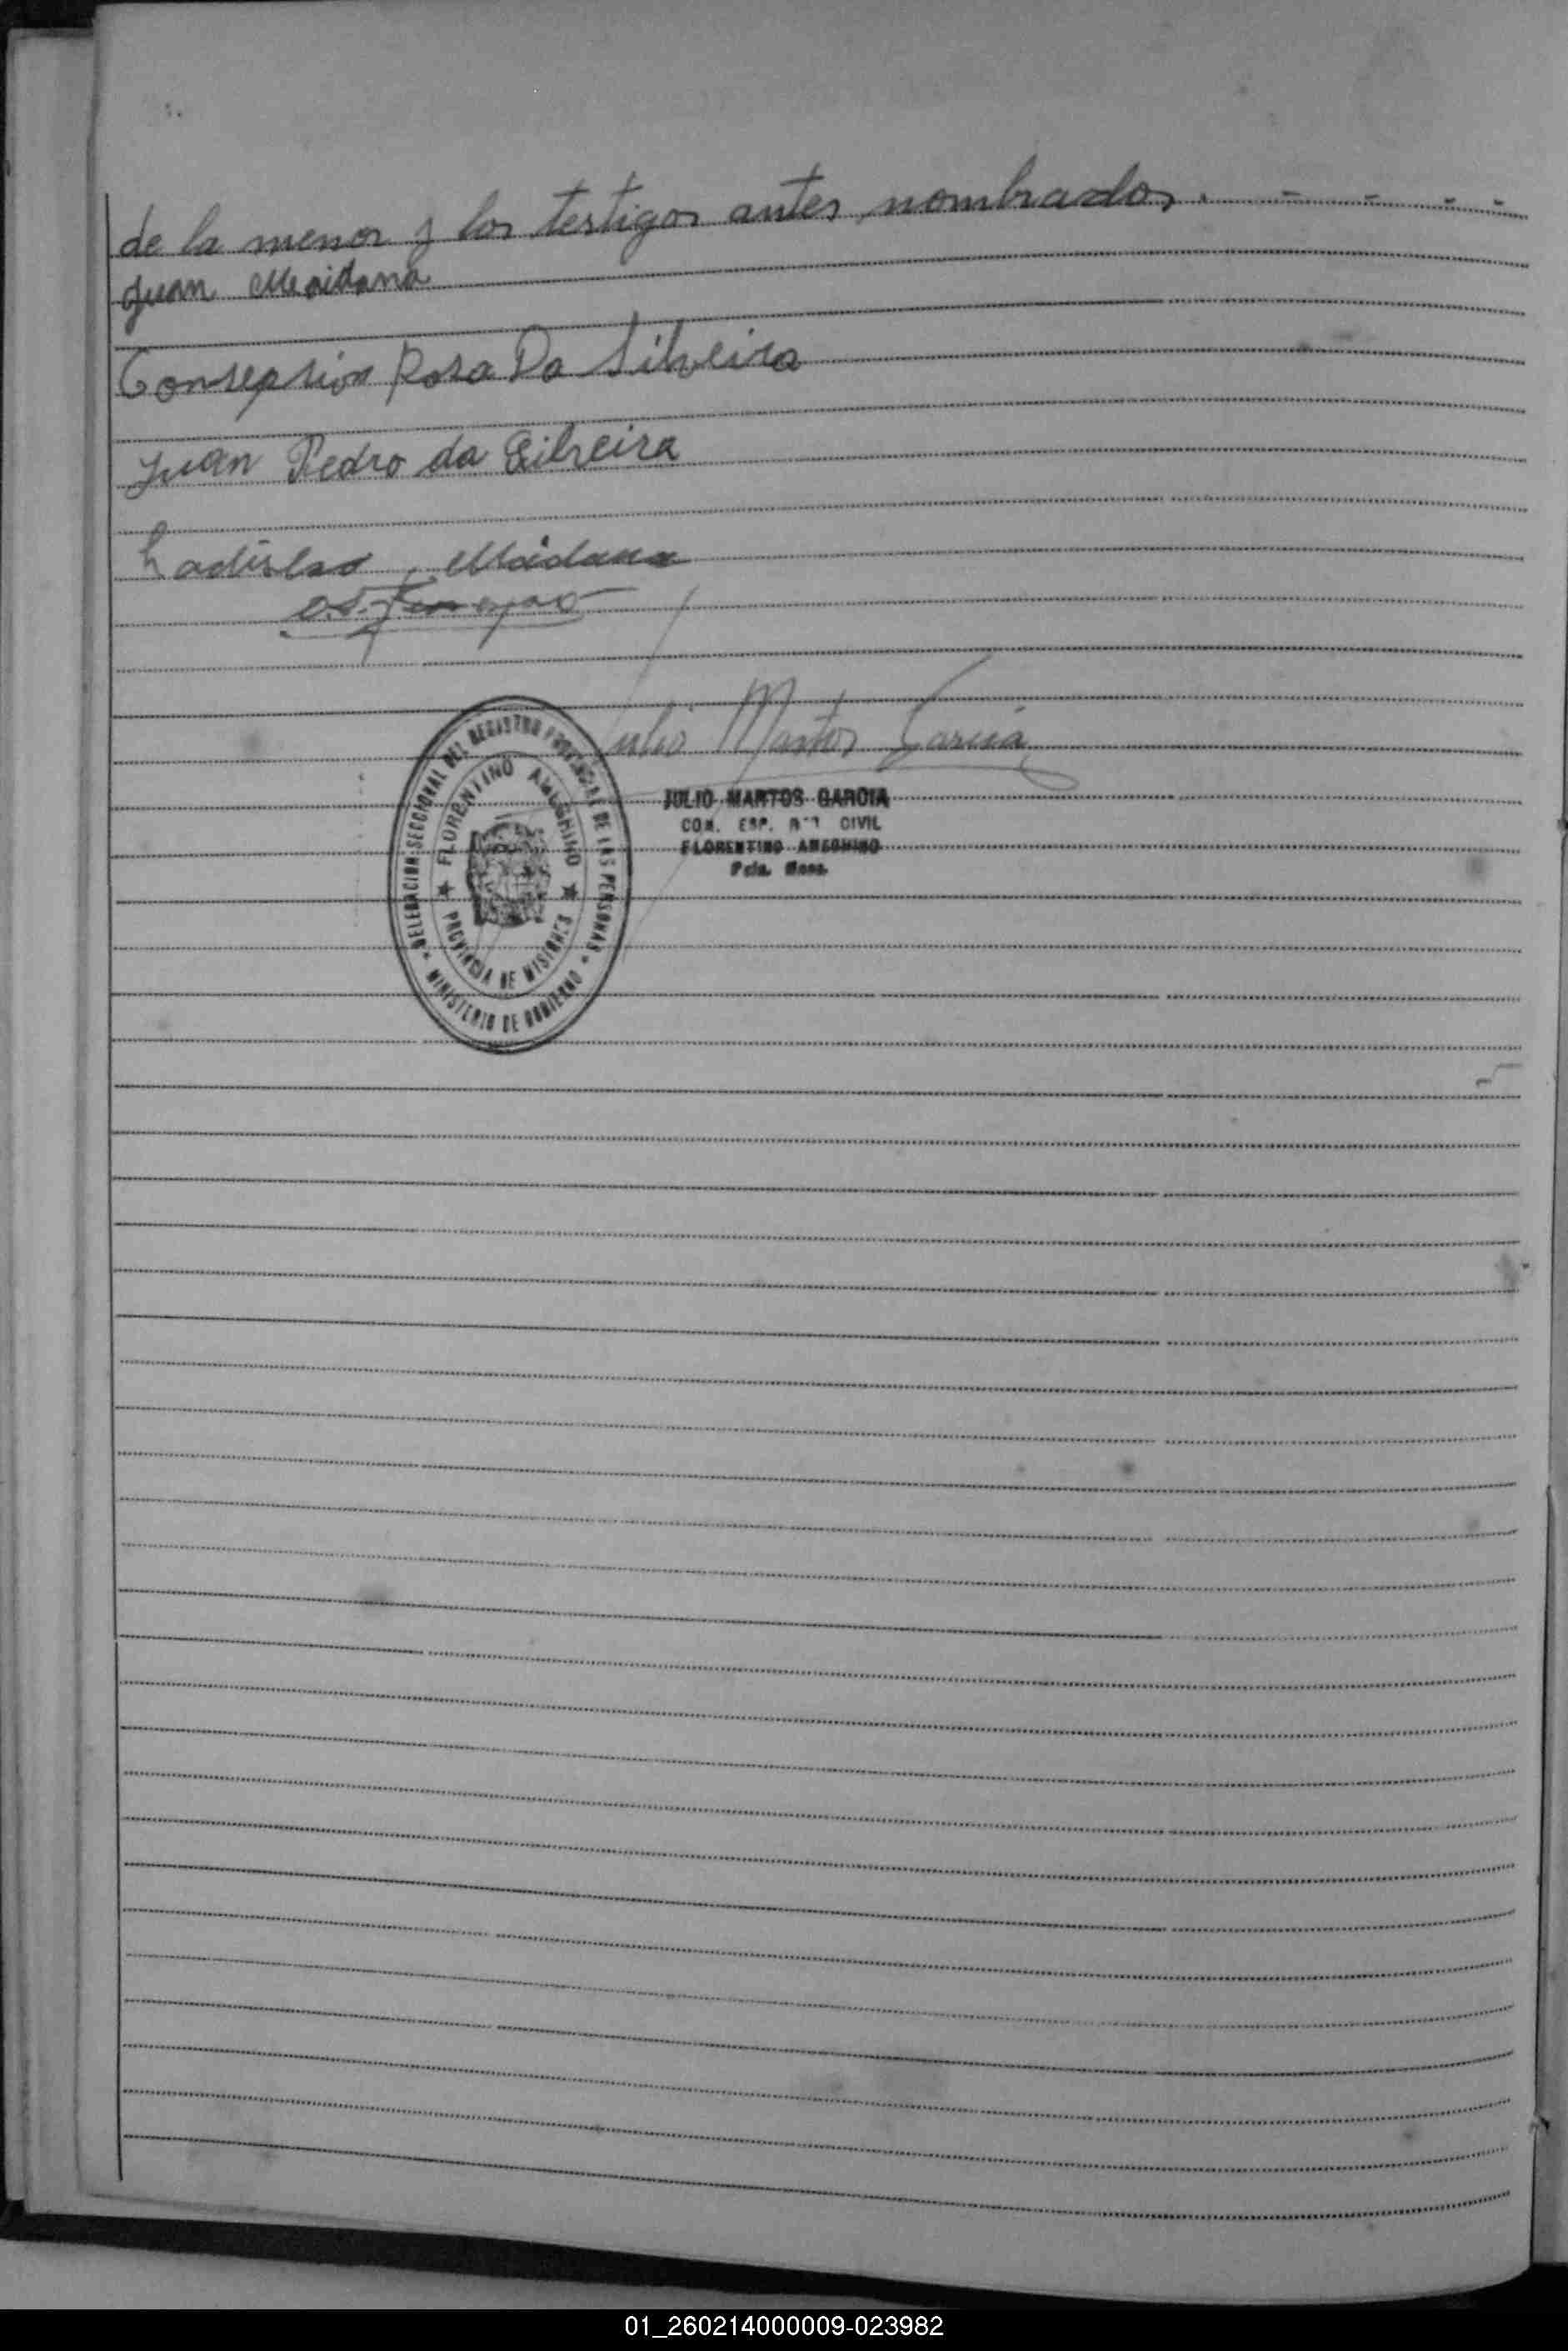 de la menor y los testigos antes nombrados. - - - -
Juan Maidana
Consepsion Rosa Da Silveira
Juan Pedro da Silveira
Ladislao Maidana
Julio Martos Garcia
DELEGACION SECCIONAL DEL REGISTRO PROVINCIAL DE LAS PERSONAS
FLORENTINO AMEGHINO
PROVINCIA DE MISIONES
MINISTERIO DE GOBIERNO
JULIO MARTOS GARCIA
CIVIL
FLORENTINO AMEGHINO
01_260214000009-023982